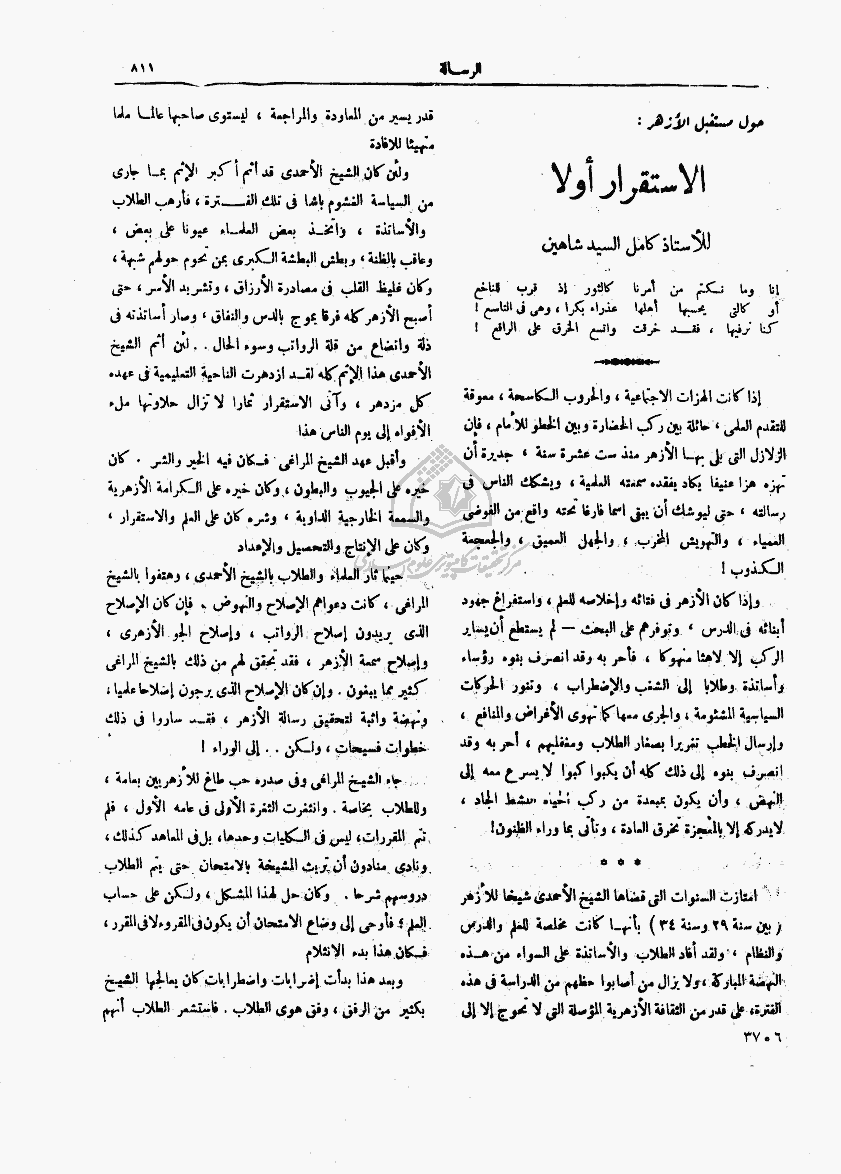 الرسالة ٨١١
حول مستقبل الأزهر :
الاستقرار أولا
للأستاذ كامل السيد شاهين
إنا وما نكتم من أمرنا كالثور إذ قرب للناخع
أو كالتي يحسبها أهلها عذراء بكرا ، وهى فى التاسع !
كنا نرفيها ، فقد خرقت واتسع الخرق على الراقع !
إذا كانت الهزات الاجتماعية ، والحروب الكاسحة ، معوقة
للتقدم العلمى ، حائلة بين ركب الحضارة وبين الخطو للأمام ، فإن
الزلازل التى بلى بهـا الأزهر منذ ست عشرة سنة ، جديرة أن
تهزه هزا عنيفا يكاد يفقده سمعته العلمية ، ويشكك الناس فى
رسالته ، حتى ليوشك أن يبقى اسما فارغا تحته واقع من الفوضى
العمياء ، والتهويش المخرب ، والجهل العميق ، والجعجعة
الكذوب !
وإذا كان الأزهر فى فتائه وإخلاصه للعلم ، واستفراغ جهود
أبنائه فى الدرس ، وتوفرهم على البحث — لم يستطع أن يساير
الركب إلا لاهثا منهوكا ، فأحر به وقد انصرف بنوه رؤساء
وأساتذة وطلابا إلى الشغب والإضطراب ، وتنور الحركات
السياسية المشئومة ، والجرى معها كما تهوى الأغراض والمنافع ،
وإرسال الخطب تغريرا بصغار الطلاب ومغفليهم ، أحر به وقد
انصرف بنوه إلى ذلك كله أن يكبوا كبوا لا يسرع معه إلى
النهض ، وأن يكون بمبعدة من ركب الحياة المنشط الجاد ،
لا يدركه إلا بالمعجزة تخرق العادة ، وتأتى بما وراء الظنون !
* * *
امتازت السنوات التى قضاها الشيخ الأحمدى شيخا للأزهر
( بين سنة ٢٩ وسنة ٣٤ ) بأنهـا كانت مخلصة للعلم والدرس
والنظام ، ولقد أفاد الطلاب والأساتذة على السواء من هـذه
النهضة المباركة ، ولا يزال من أصابوا حظهم من الدراسة فى هذه
الفترة، على قدر من الثقافة الأزهرية المؤصلة التى لا تحوج إلا إلى
قدر يسير من المعاودة والمراجعة ، ليستوى صاحبها عالمـا ملما
متهيئا للافادة
ولئن كان الشيخ الأحمدى قد أثم أكبر الإثم بمـا جارى
من السياسة الغشوم باشا فى تلك الفـترة ، فأرهب الطلاب
والأساتذة ، واتخـذ بعض العلمـاء عيونا على بعض ،
وعاقب بالظنة ، وبطش البطشة الكبرى بمن تحوم حولهم شبهة ،
وكان غليظ القلب فى مصادرة الأرزاق ، وتشريد الأسر ، حتى
أسبح الأزهر كله فرقا يموج بالدس والنفاق ، وصار أساتذته فى
ذلة واتضاع من قلة الرواتب وسوء الحال . . لئن أثم الشيخ
الأحمدى هذا الإثم كله لقـد ازدهرت الناحية التعليمية فى عهده
كل مزدهر ، وآتى الاستقرار ثمارا لا تزال حلاوتها ملء
الأفواه إلى يوم الناس هذا
وأقبل عهد الشيخ المراغى فـكان فيه الخير والشر . كان
خيره على الجيوب والبطون ، وكان خيره على الكرامة الأزهرية
والسمعة الخارجية الداوية ، وشره كان على العلم والاستقرار ،
وكان على الإنتاج والتحصيل والإعداد
حينما ثار العلماء والطلاب بالشيخ الأحمدى ، وهتفوا بالشيخ
المراغى ، كانت دعواهم الإصلاح والنهوض . فإن كان الإصلاح
الذى يريدون إصلاح الرواتب ، وإصلاح الجو الأزهرى ،
وإصلاح سمعة الأزهر ، فقد تحقق لهم من ذلك بالشيخ المراغى
كثير مما يبغون . وإن كان الإصلاح الذى يرجون إصلاحا علميا ،
ونهضة واثبة لتحقيق رسالة الأزهر ، فقـد ساروا فى ذلك
خطوات فسيحات ، ولكن . . إلى الوراء !
جاء الشيخ المراغى وفى صدره حب طاغ للأزهريين بعامة ،
وللطلاب بخاصة . وانثغرت الثغرة الأولى فى عامه الأول ، فلم
تتم المقررات، ليس فى الكليات وحدها، بل فى المعاهد كذلك ،
ونادى منادون أن تريث المشيخة بالامتحان حتى يتم الطلاب
دروسهم شرحا . وكان حل لهذا المشكل ، ولكن على حساب
العلم ؛ فأوحى إلى وضاع الامتحان أن يكون فى المقروء لا فى المقرر ،
فـكان هذا بدء الانثلام
وبعد هذا بدأت إضرابات واضطرابات كان يعالجها الشيخ
بكثير من الرفق ، وفق هوى الطلاب . فاستشعر الطلاب أنهم
٦ ٠ ٣٧
مركز تحقيقات كامپيوترى علوم اسلامى